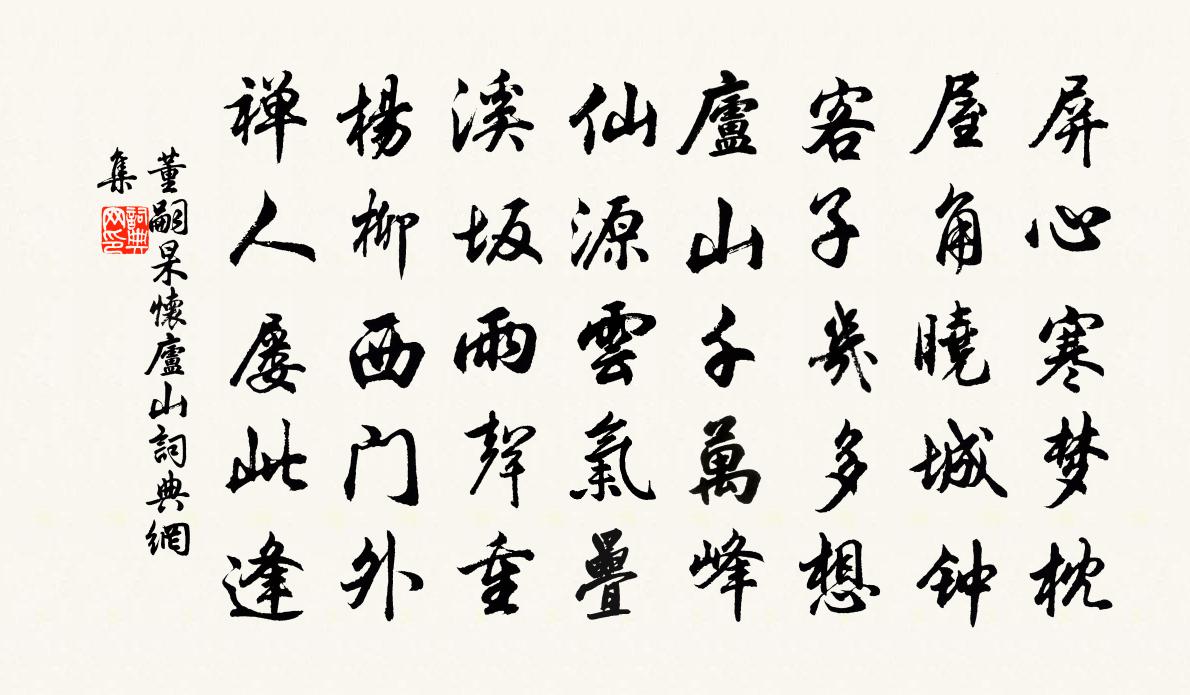 屏心寒梦枕
屋角曉城钟
客子幾多想
廬山千萬峰
仙源雲氣疊
溪坂雨聲重
楊柳西门外
禅人屡此逢
董嗣杲懷廬山詞典網
集
詞典网印